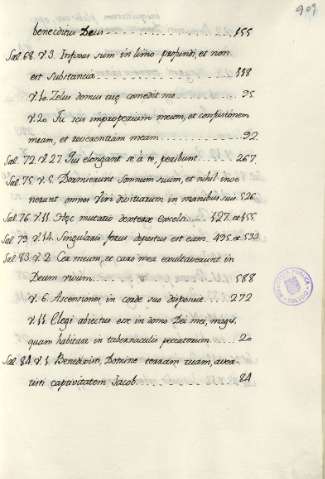 901
benedictus Deus 155
Sal. 68. v. 3. Infixus sum in limo profundi, et non
est substancia 118
v. 10. Zelus domus tuæ comedit me 95
v. 20. Tu scis improperium meum, et confusionem
meam, et reverentiam meam 92
Sal. 72. v. 27. Qui elongant se à te, peribunt 267
Sal. 75. v. 5. Dormierunt Somnum suum, et nihil inve
nerunt omnes Viri divitiarum in manibus suis 526
Sal. 76. v. 11. Hæc mutatio dexteræ Excelsi 127. et 155
Sal. 79. v. 14. Singularis ferus depastus est eam. 495. et 532
Sal. 83. v. 2. Cor meum, et caro mea exultaverunt in
Deum vivum 588
v. 6. Ascentiones in corde suo disposuit 272
v. 11. Elegi abiectus esse in domo Dei mei, magis,
quam habitare in tabernaculis peccatorum 20
Sal. 84. v. 1. Benedixisti, Domine terram tuam, aver
tisti captivitatem Jacob 84